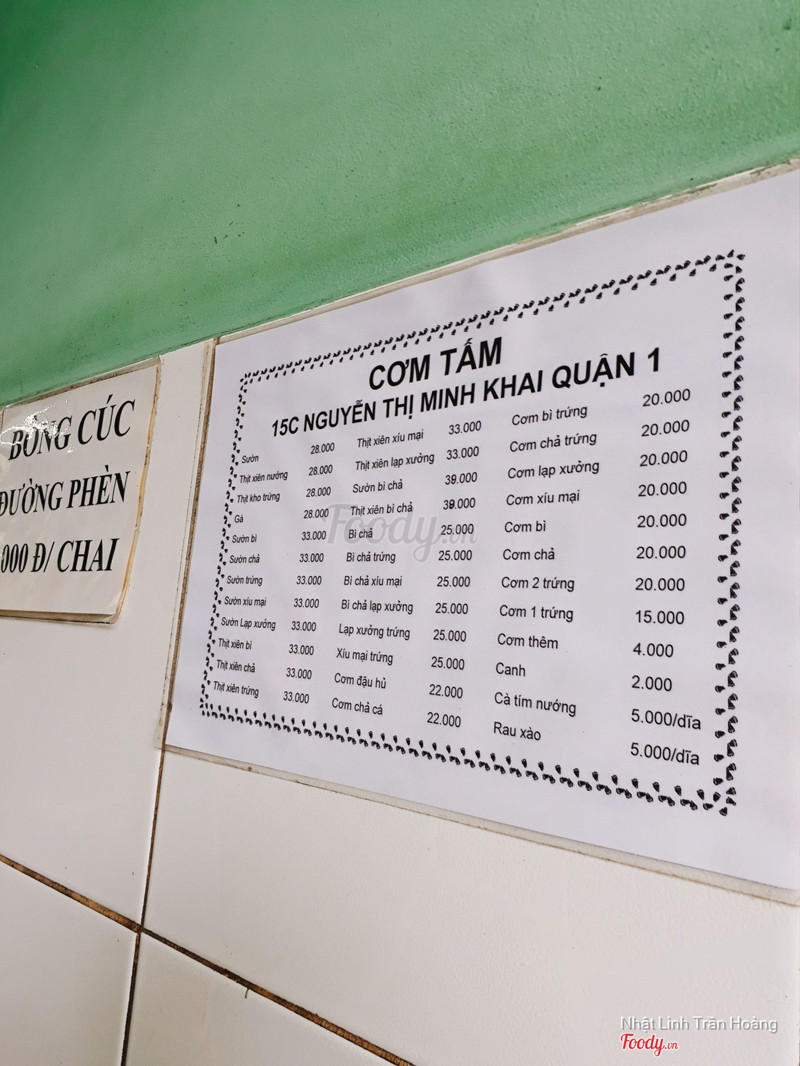 BÔNG CÚC
ĐƯỜNG PHÈN
000 Đ/ CHAI
CƠM TẤM
15C NGUYỄN THỊ MINH KHAI QUẬN 1
Sườn 28.000
Thịt xiên nướng 28.000
Thịt kho trứng 28.000
Gà 28.000
Sườn bì 33.000
Sườn chả 33.000
Sườn trứng 33.000
Sườn xíu mại 33.000
Sườn Lạp xưởng 33.000
Thịt xiên bì 33.000
Thịt xiên chả 33.000
Thịt xiên trứng 33.000
Thịt xiên xíu mại 33.000
Thịt xiên lạp xưởng 33.000
Sườn bì chả 39.000
Thịt xiên bì chả 39.000
Bì chả 25.000
Bì chả trứng 25.000
Bì chả xíu mại 25.000
Bì chả lạp xưởng 25.000
Lạp xưởng trứng 25.000
Xíu mại trứng 25.000
Cơm đậu hủ 22.000
Cơm chả cá 22.000
Cơm bì trứng 20.000
Cơm chả trứng 20.000
Cơm lạp xưởng 20.000
Cơm xíu mại 20.000
Cơm bì 20.000
Cơm chả 20.000
Cơm 2 trứng 20.000
Cơm 1 trứng 15.000
Cơm thêm 4.000
Canh 2.000
Cà tím nướng 5.000/dĩa
Rau xào 5.000/dĩa
Foody.vn
Nhật Linh Trần Hoàng
Foody.vn